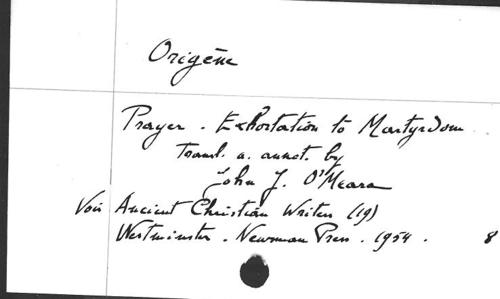 Origène
Prayer. Exhortation to Martyrdom
Transl. a. annot. by
John J. O'Meara
Voir Ancient Christian Writers (19)
Westminster. Newman Press. 1954. 8